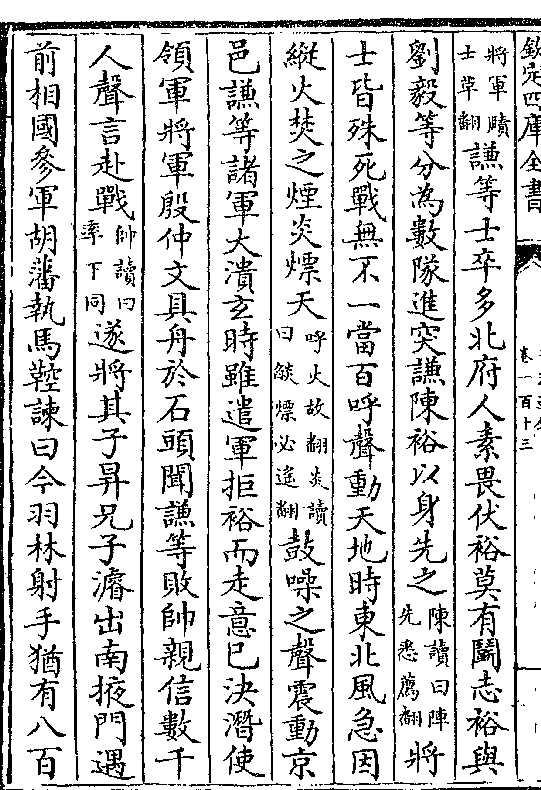 欽定四庫全書
卷一百十三
將軍賾
士草翻
謙等士卒多北府人素畏伏裕莫有鬭志裕與
劉毅等分為數隊進突謙陳裕以身先之
陳讀曰陣
先悉薦翻
將
士皆殊死戰無不一當百呼聲動天地時東北風急因
縱火焚之煙炎熛天
呼火故翻炎讀
曰燄熛必遙翻
鼓噪之聲震動京
邑謙等諸軍大潰玄時雖遣軍拒裕而走意已決潛使
領軍將軍殷仲文具舟於石頭聞謙等敗帥親信數千
人聲言赴戰
帥讀曰
率下同
遂將其子昇兄子濬出南掖門遇
前相國參軍胡藩執馬鞚諫曰今羽林射手猶有八百